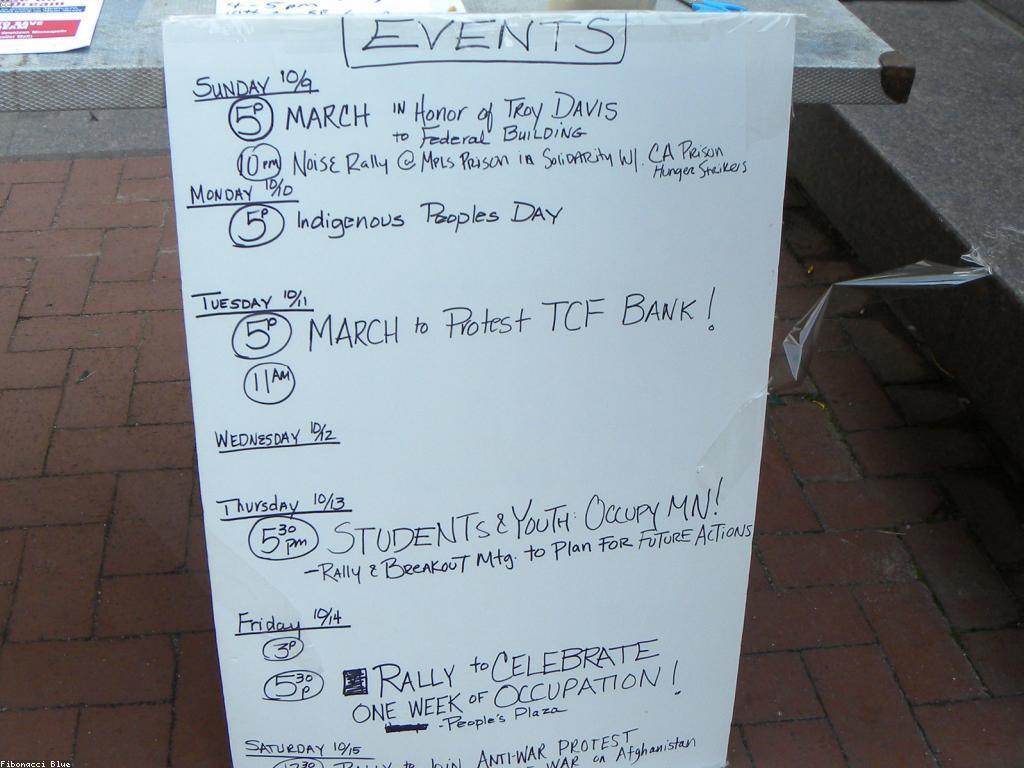 Dream
4-5pm
EVENTS
SUNDAY 10/9
5P MARCH IN Honor of TROY DAVIS
to Federal BUILDING
10pm NOISE RALLY @ MPLS PRISON in SOLIDARITY W/ CA PRISON
Hunger Strikers
MONDAY 10/10
5P Indigenous Peoples DAY
TUESDAY 10/11
5P MARCH to Protest TCF BANK!
11AM
WEDNESDAY 10/12
Thursday 10/13
5 30 pm STUDENTS & YOUTH: OCCUPY MN!
-RALLY & BREAKOUT Mtg. to Plan FOR FUTURE ACTIONS
Friday 10/14
3P
5 30 P RALLY to CELEBRATE
ONE WEEK OF OCCUPATION!
-People's Plaza
SATURDAY 10/15
12 30 RALLY to JOIN ANTI-WAR PROTEST
WAR on Afghanistan
Fibonacci Blue